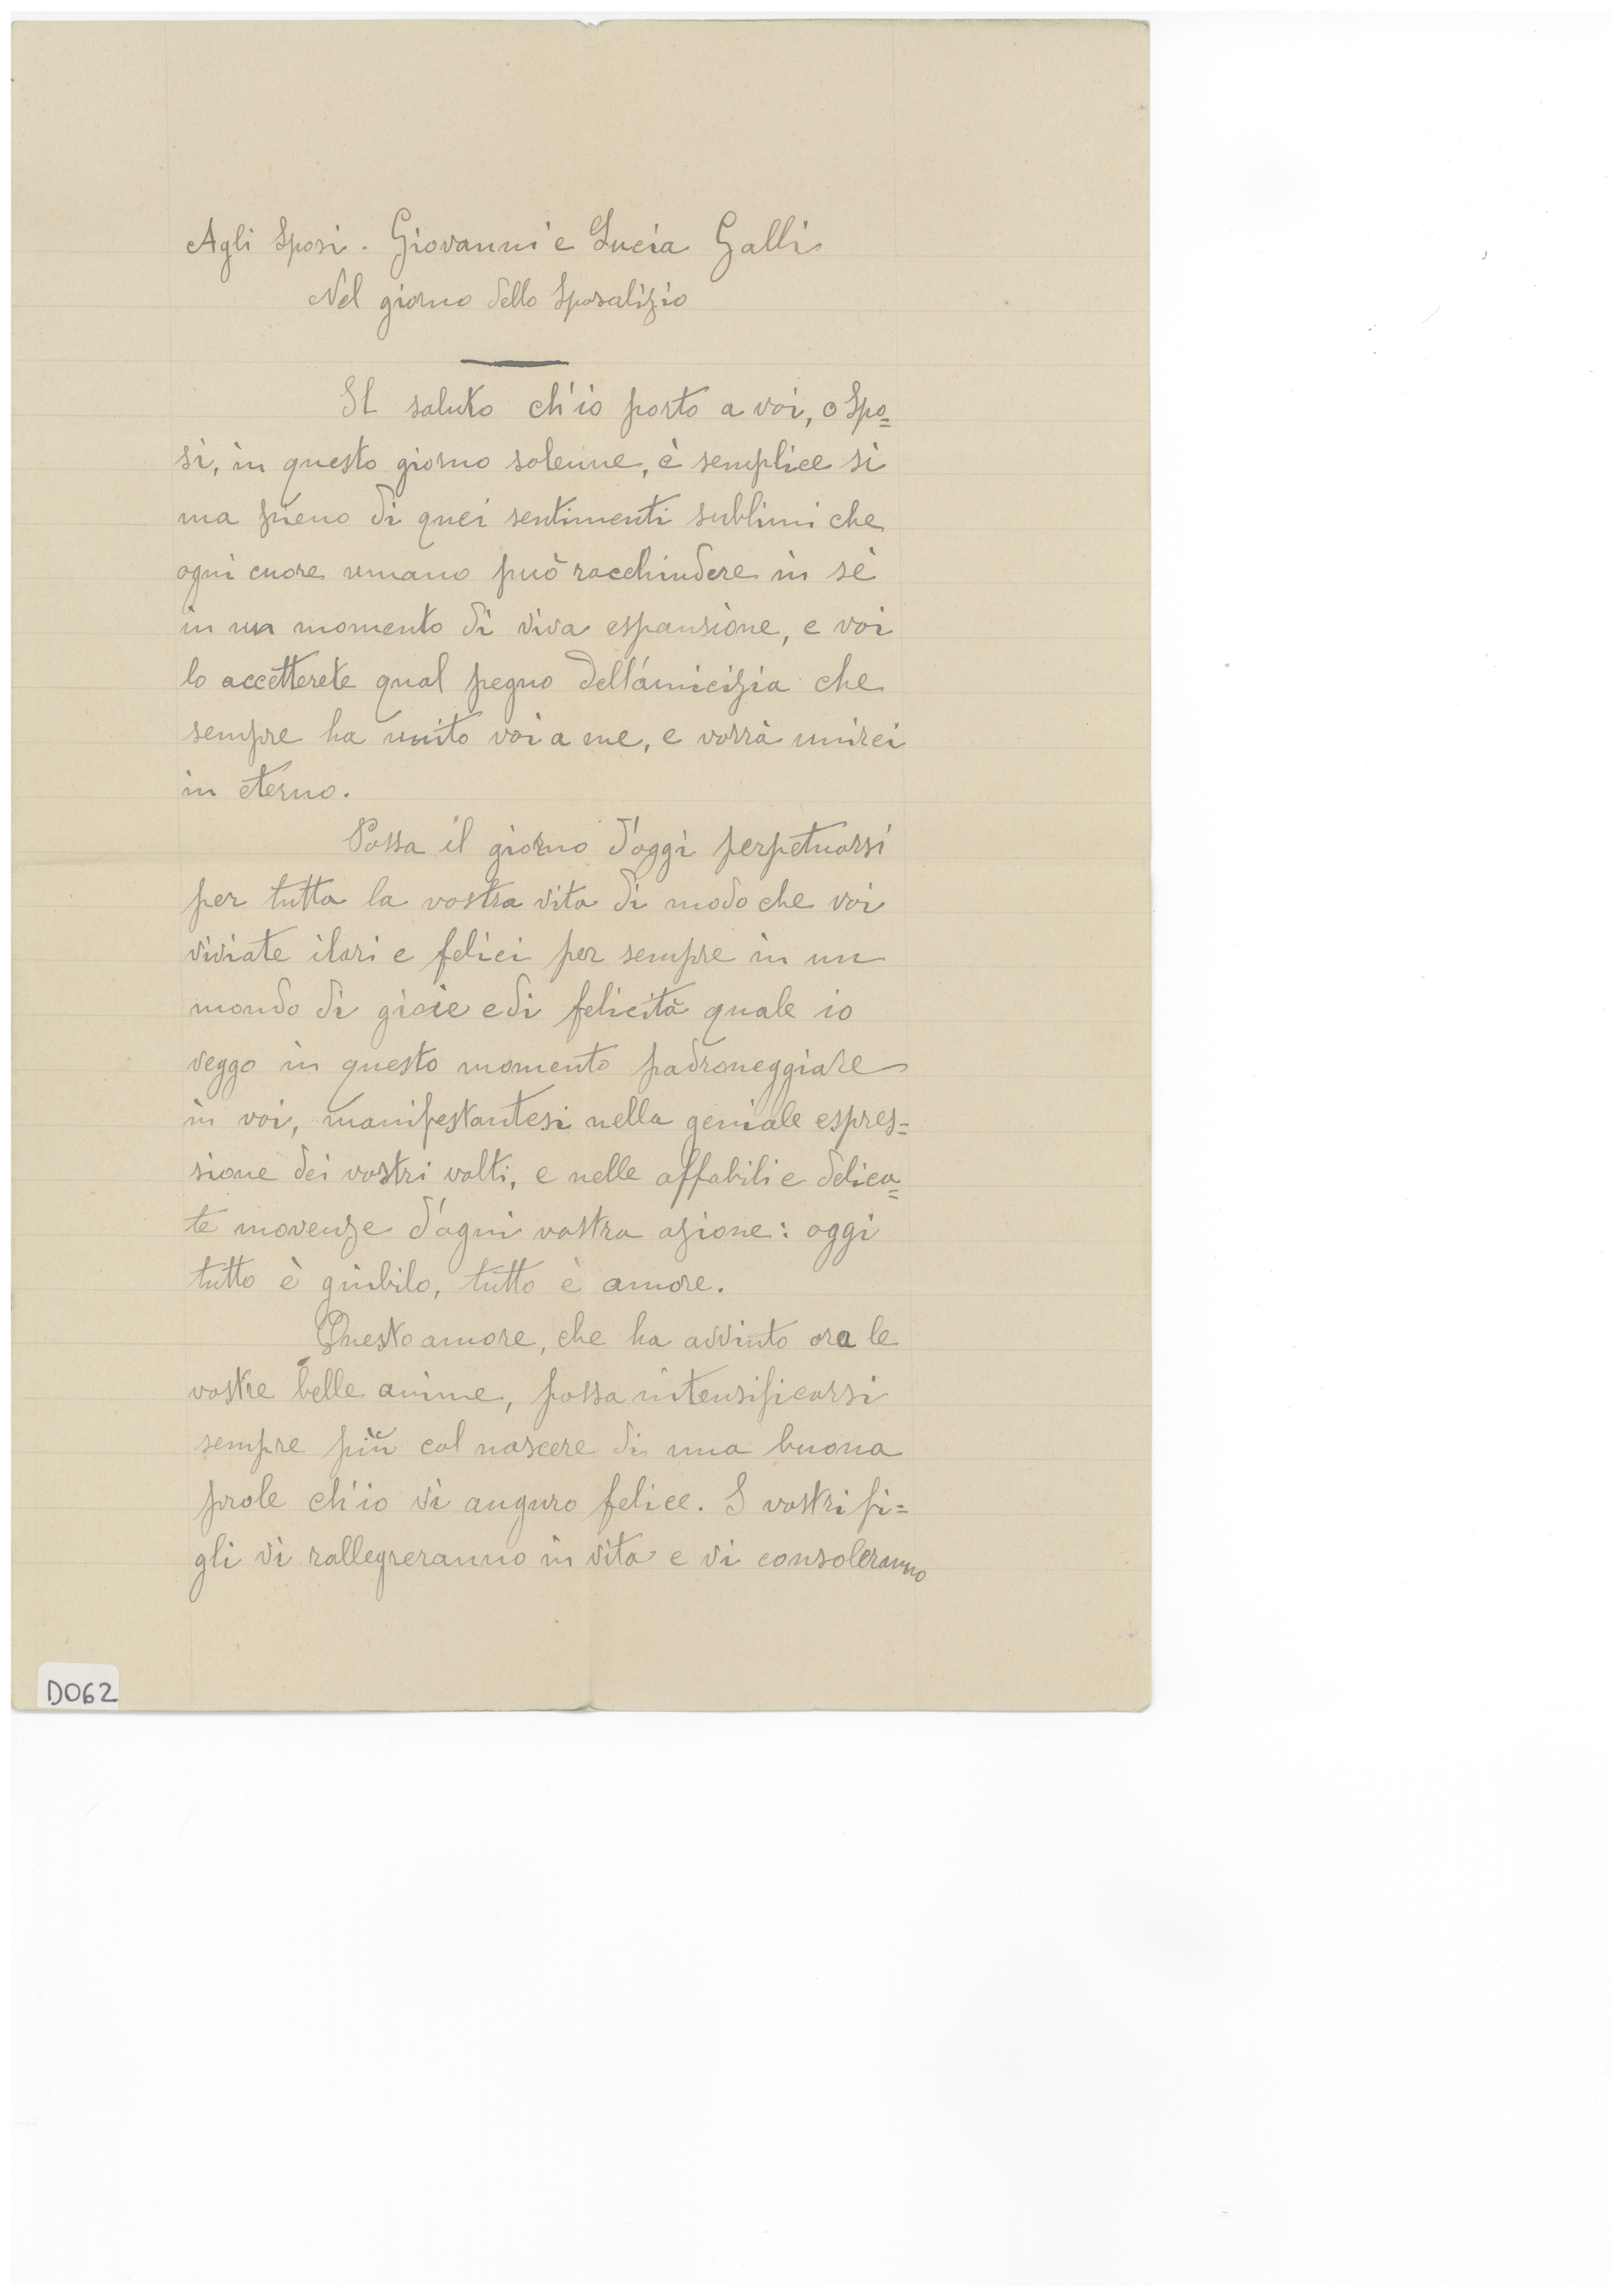 Agli Sposi. Giovanni e Lucia Galli
Nel giorno dello Sposalizio
Il saluto ch'io porto a voi, o Spo=
si, in questo giorno solenne, è semplice sì
ma pieno di quei sentimenti sublimi che
ogni cuore umano può racchiudere in sè
in un momento di viva espansione, e voi
lo accetterete qual pegno dell'amicizia che
sempre ha unito voi a me, e vorrà unirci
in eterno.
Possa il giorno d'oggi perpetuarsi
per tutta la vostra vita di modo che voi
viviate ilari e felici per sempre in un
mondo di gioie e di felicità quale io
veggo in questo momento padroneggiare
in voi, manifestantesi nella geniale espres=
sione dei vostri volti, e nelle affabili e delica=
te movenze d'ogni vostra azione: oggi
tutto è giubilo, tutto è amore.
Questo amore, che ha avvinto ora le
vostre belle anime, possa intensificarsi
sempre più col nascere di una buona
prole ch'io vi auguro felice. I vostri fi=
gli vi rallegreranno in vita e vi consoleranno
D062